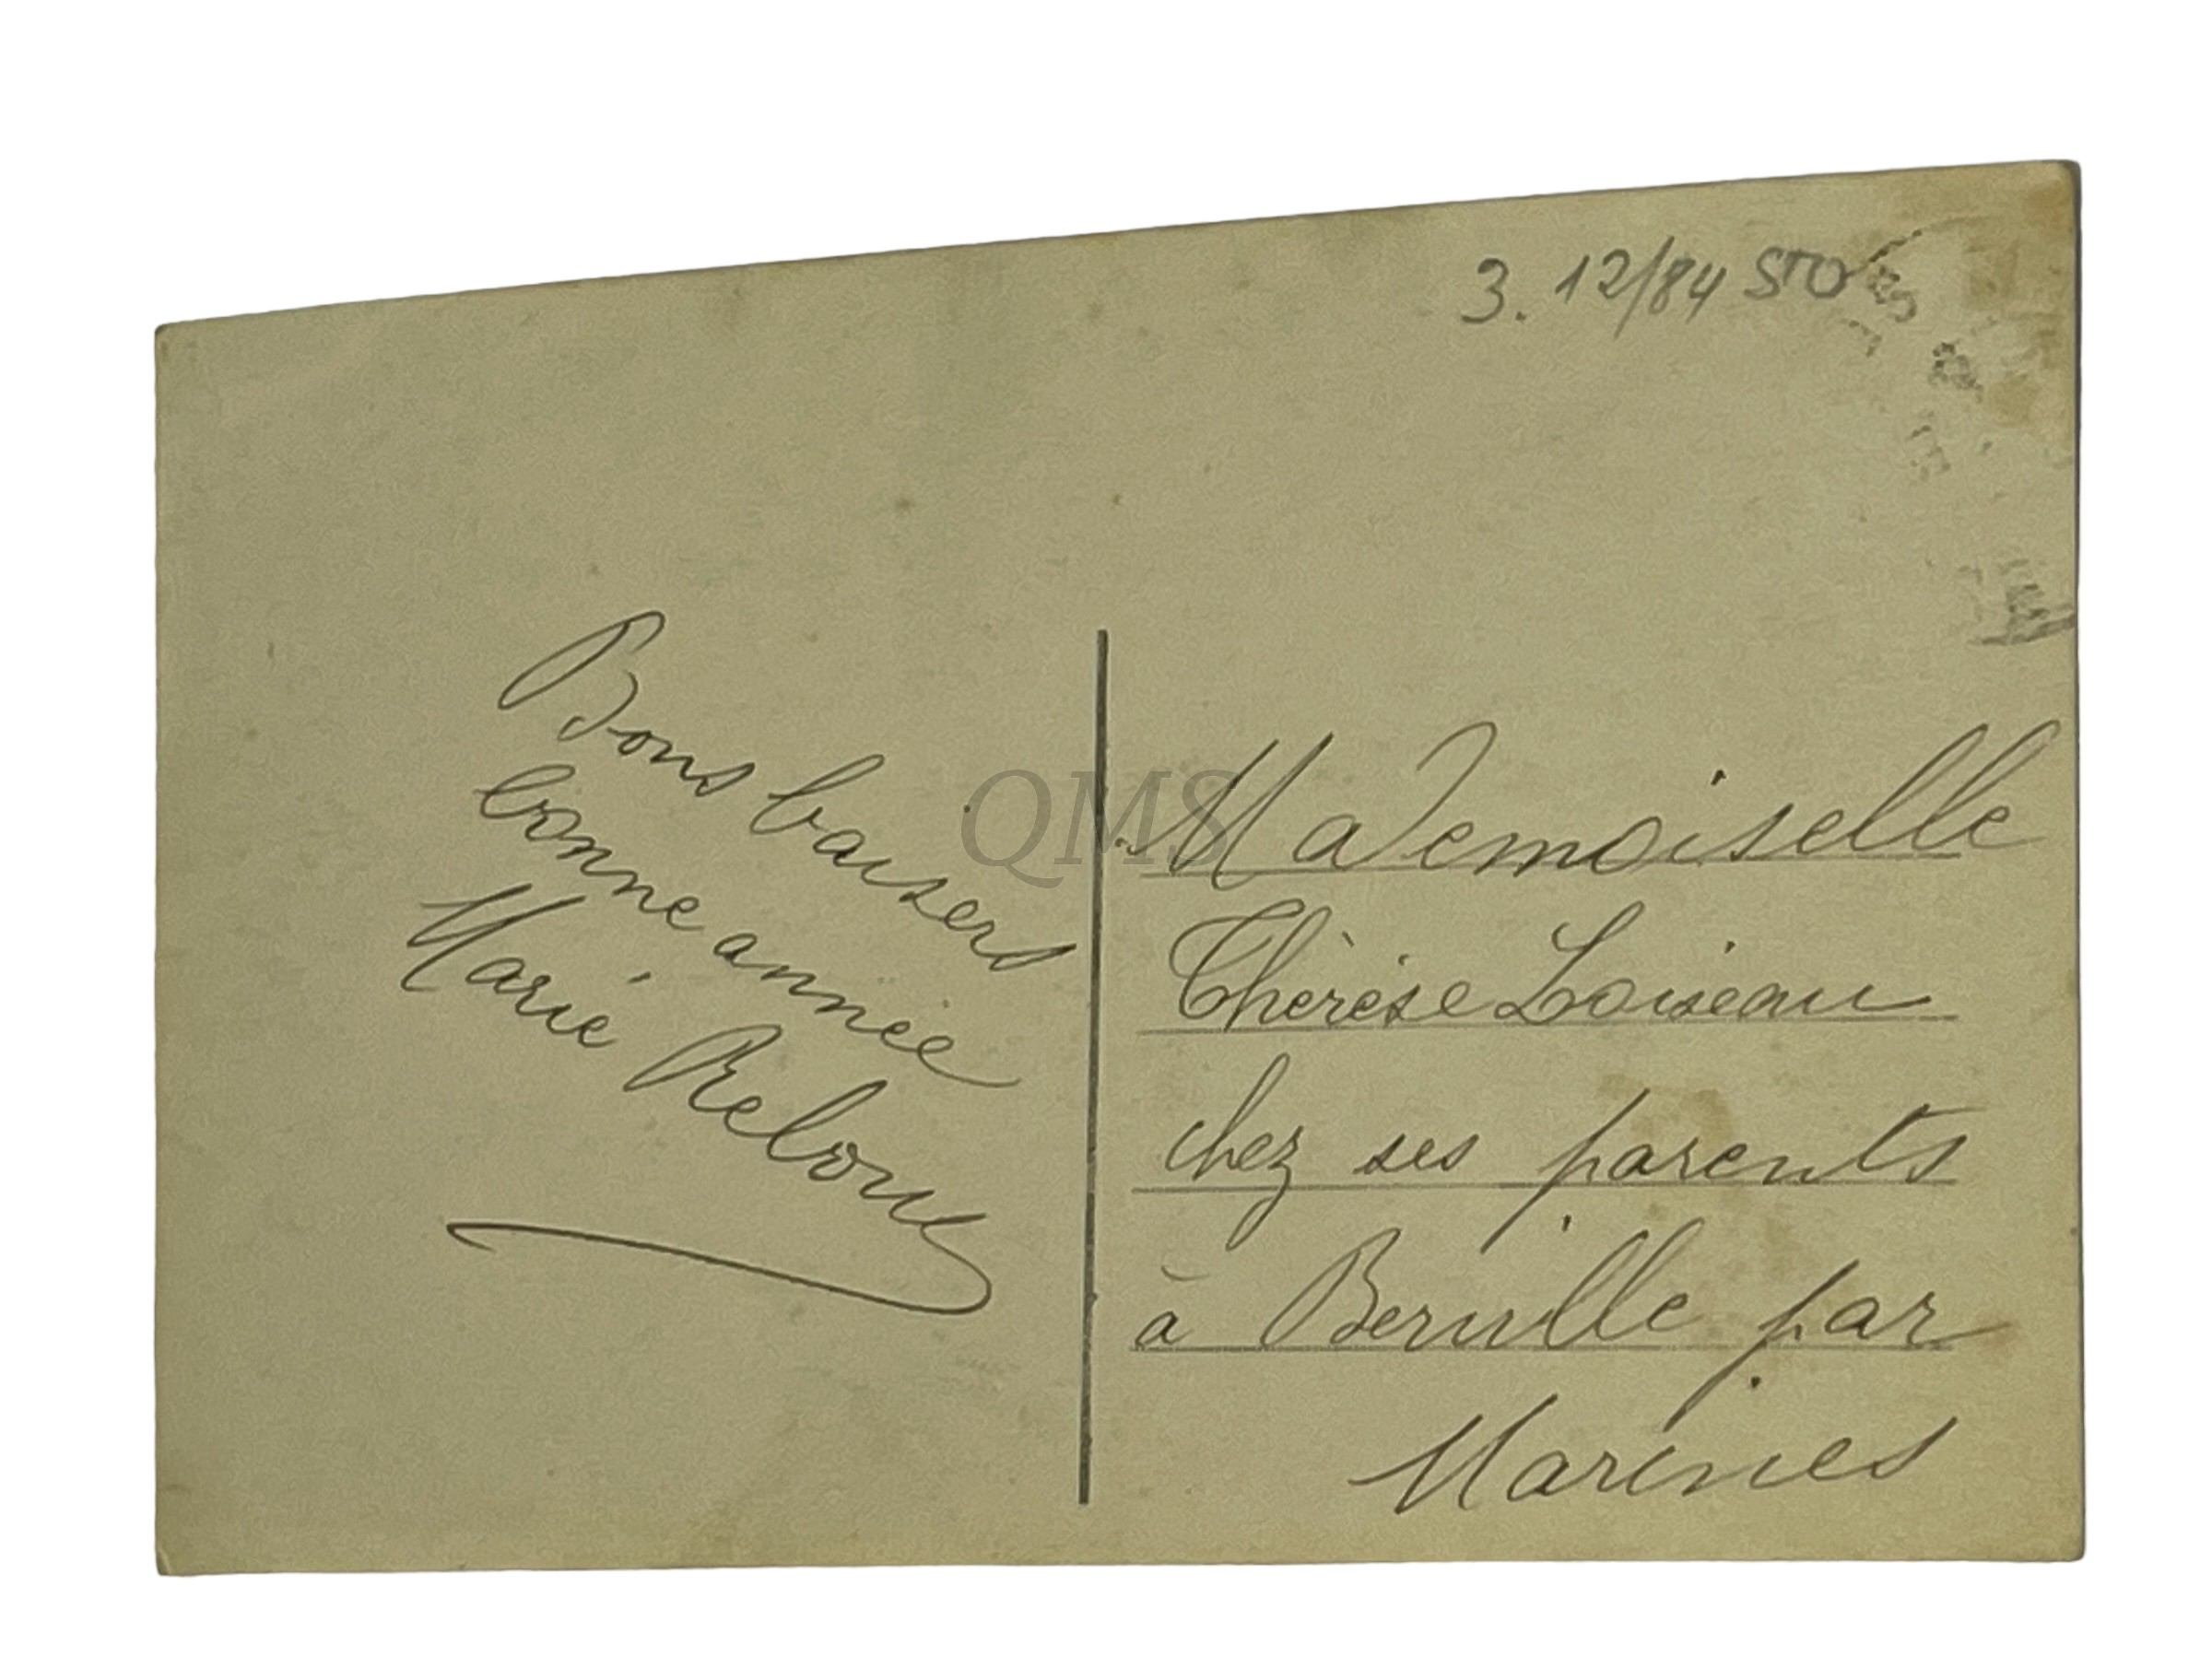 3. 12/84 STO
Bons baisers
bonne année
Marie Reloue
Mademoiselle
Thérèse Loiseau
chez ses parents
à Berville par
Marines
QMS